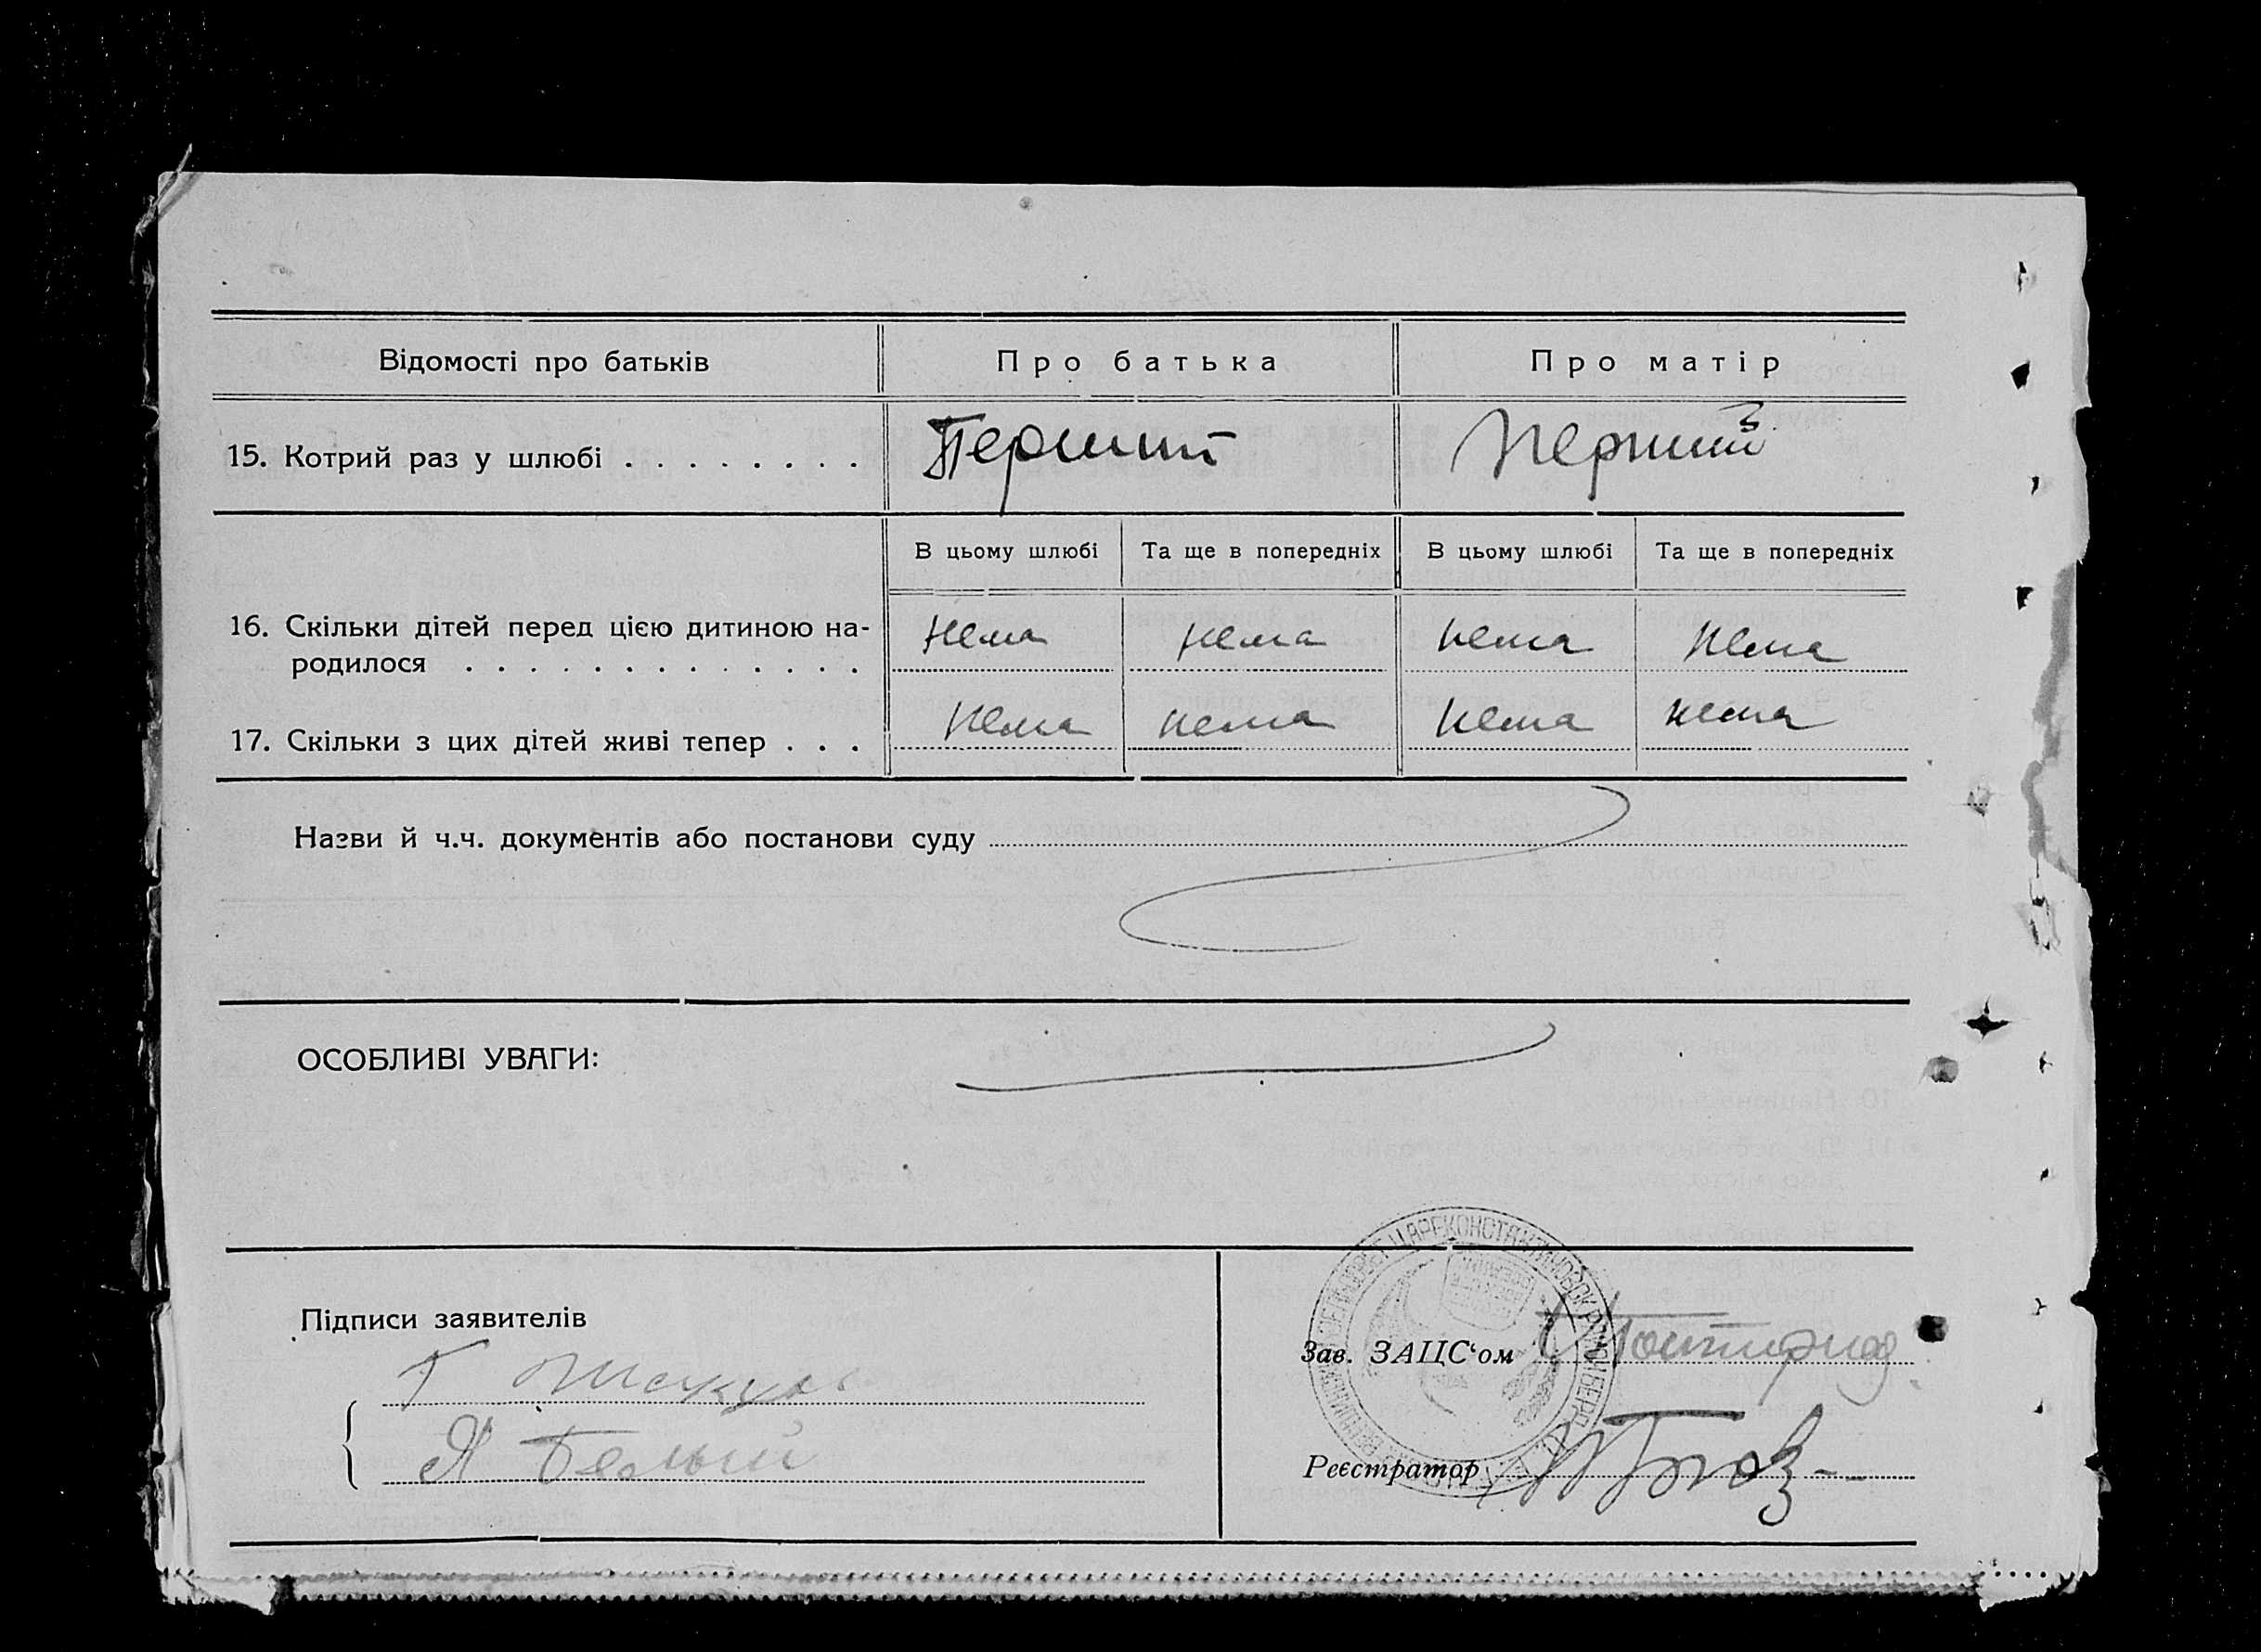 Відомості про батьків
Про батька
Про матір
15. Котрий раз у шлюбі . . . . . . . .
Перший
Перший
В цьому шлюбі
Та ще в попередніх
В цьому шлюбі
Та ще в попередніх
16. Скільки дітей перед цією дитиною на-
родилося . . . . . . . . . . . . .
нема
нема
нема
нема
17. Скільки з цих дітей живі тепер . . .
нема
нема
нема
нема
Назви й ч.ч. документів або постанови суду
ОСОБЛИВІ УВАГИ:
Підписи заявителів
Зав. ЗАЦС'ом
Я Белый
Реєстратор